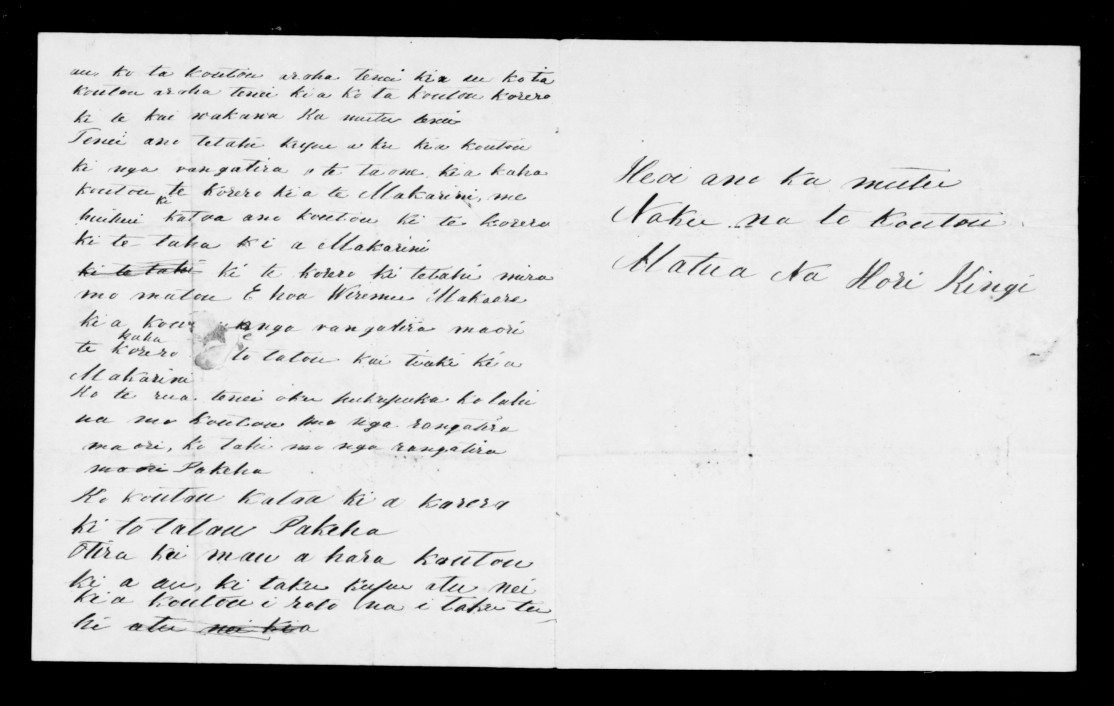 au, ko ta koutou aroha tenei kia au ko ta
koutou aroha tenei kia ko ta koutou korero
ki te kai wakawa Ka mutu tenei
Tenei ano tetahi kupu a ku kia koutou
ki nga rangatira o te taone kia kaha
koutou te korero kia te Makarini, me
huihui ki katoa ano koutou ki te korero
ki te taha ki a Makarini
ki te tahi ki te korero ki tetahi mira
mo matou E hoa Wiremu
ki a nga rangatira maori
kaha
te korero to tatou kai tiaki kia
Makarini
Ko te rua tenei oku pukapuka ko tahi
na mo koutou mo nga rangatira
maori, ko tahi mo nga rangatira
maori Pakeha
Ko koutou katoa ki a korero
ki to tatou Pakeha
Otira kei mau a hara koutou
ki a au, ki taku kupu atu nei
kia koutou i roto na i taku tu
ki atu nei kia
Heoi ano ka mutu
Naku na to koutou
Matua Na Hori Kingi